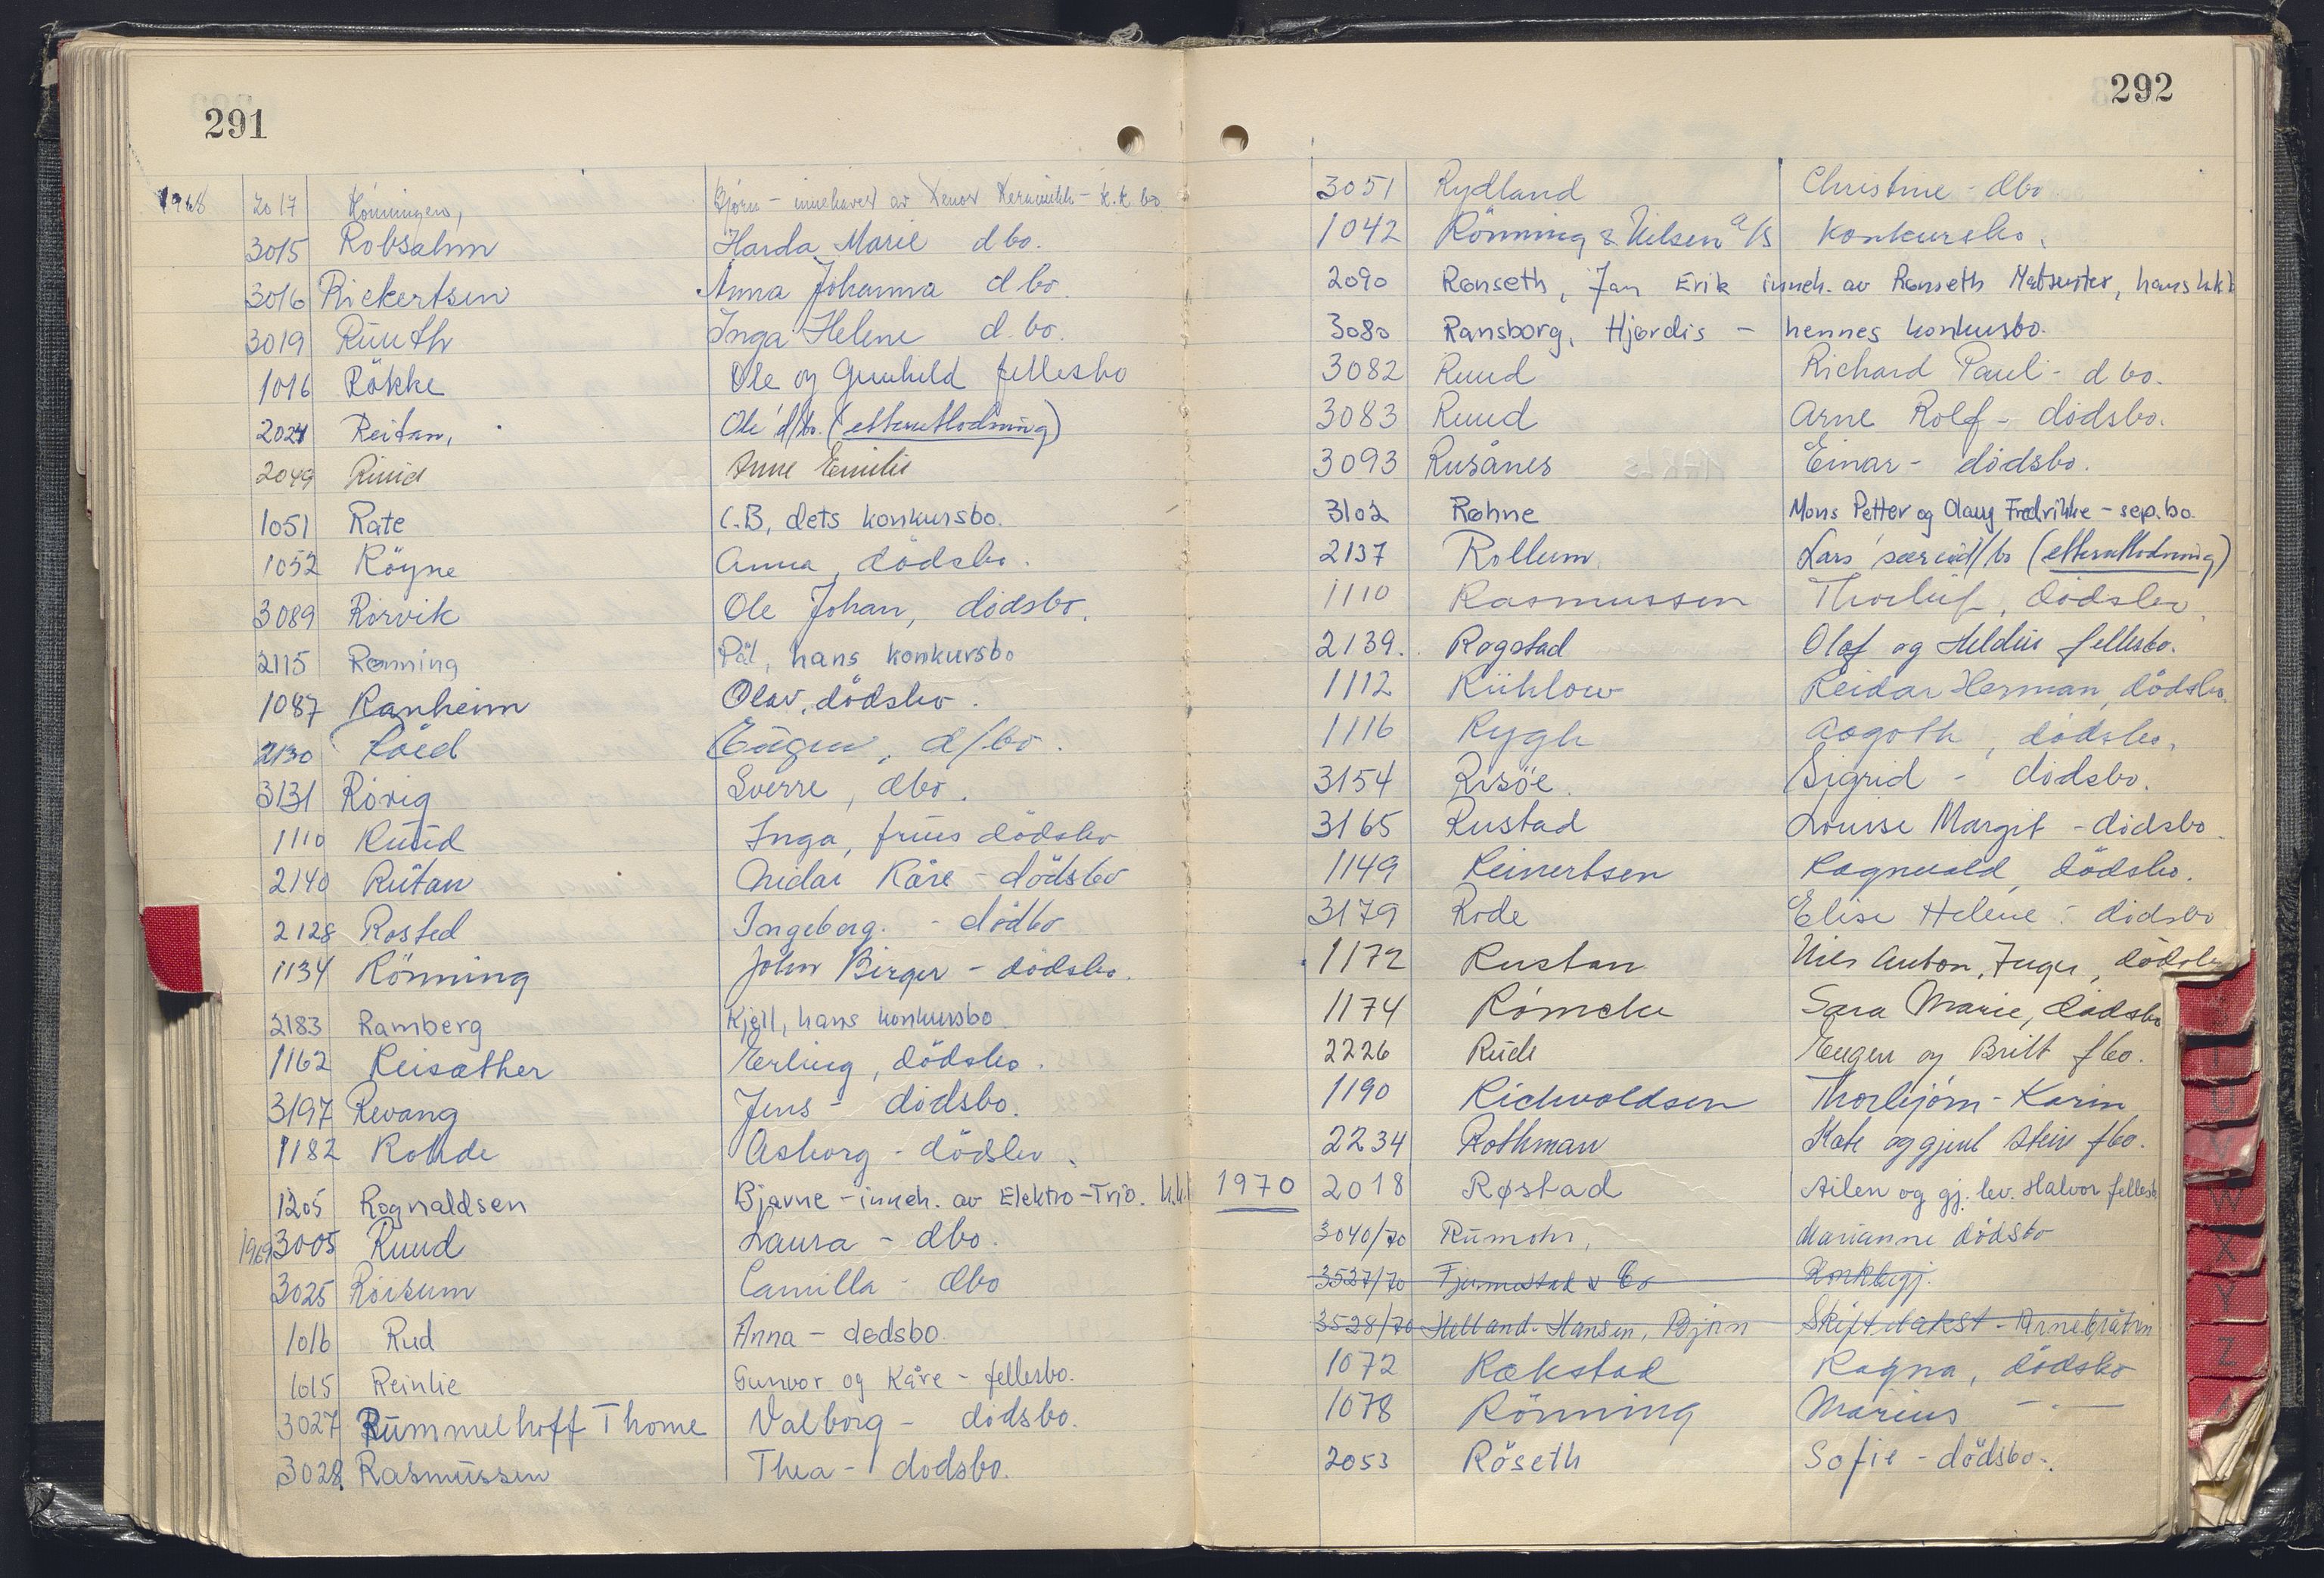 291
1968 2017 Rönningen, Björn - innehaver av Xenos Keramikk - k.k bo
3015 Robsahm Harda Marie d bo.
3016 Rickertsen Anna Johanna d bo.
3019 Ruuth Inga Helene d. bo.
1016 Rökke Ole og Gunhild fellesbo
2021 Reitan, Ole d/bo. (etterutlodning)
2049 Ruud Anne Emilie
1051 Rate C.B, dets konkursbo.
1052 Röyne Anna, dödsbo.
3089 Rörvik Ole Johan, dödsbo.
2115 Rønning Pål, hans konkursbo
1087 Ranheim Olav, dödsbo.
2130 Röed Eugen, d/bo.
3131 Rörig Sverre, dbo.
1110 Ruud Inga, frues dödsbo
2140 Reitan Kåre - dödsbo
2128 Rosted Ingeborg. - dödbo
1134 Rönning John Birger - dödsbo.
2183 Ramberg Kjell, hans konkursbo
1162 Reisæther Erling, dödsbo.
3197 Revang Jens - dödsbo.
1182 Rohde Asborg - dödsbo.
1205 Rognaldsen Bjarne - inneh. av Elektro-Trio. k.k.b
1969 3005 Ruud Laura - dbo.
3025 Röisum Camilla - dbo
1016 Rud Anna - dødsbo
1015 Reinlie Gunvor og Kåre - fellesbo.
3027 Rummelhoff Thome Valborg - dödsbo.
3028 Rasmussen Thea - dodsbo.
292
3051 Rydland Christine - dbo
1042 Rönning & Nilsen a/s konkursbo.
2090 Rønseth, Jan Erik inneh. av Rønseth Matsenter, hans k.k.b
3080 Ransborg, Hjørdis - hennes konkursbo.
3082 Ruud Richard Paul - d bo.
3083 Ruud Arne Rolf - dödsbo.
3093 Rusånes Einar - dödsbo.
3102 Røhne Mons Petter og Olaug Fredrikke - sep.bo.
2137 Rollum Lars særeied/bo (etterutlodning)
1110 Rasmussen Thorleif, dödsbo.
2139. Rogstad Olaf og Heldur fellesbo.
1112 Rühlow Reidar Herman, dödsbo.
1116 Rygh Aagoth, dödsbo.
3154 Risöe. Sigrid - dödsbo.
3165 Rustad Louise Margit - dödsbo.
1149 Reinertsen Ragnvald, dödsbo.
3179 Rode Elise Helene - dödsbo
1172 Rustan Nils Anton, Inger, dödsbo
1174 Römcke Sara Marie, dødsbo
2226 Rude Eugen og Britt fbo.
1190 Richvoldsen Thorbjörn - Karin
2234 Rothman Kate og gjenl Stein fbo.
1970 2018 Røstad Ailen og gj. lev. Halvor fellesb
3040/70 Rumohr, Marianne dödsbo
3527/70 Fjermestad & Co Konkbegj.
3528/70 Helland-Hansen, Björn Skiftetakst - Arnebråten
1072 Rækstad Ragna, dödsbo
1078 Rönning Marius - " -
2053 Röseth Sofie - dödsbo.
S
T
U
V
W
X
Y
Z